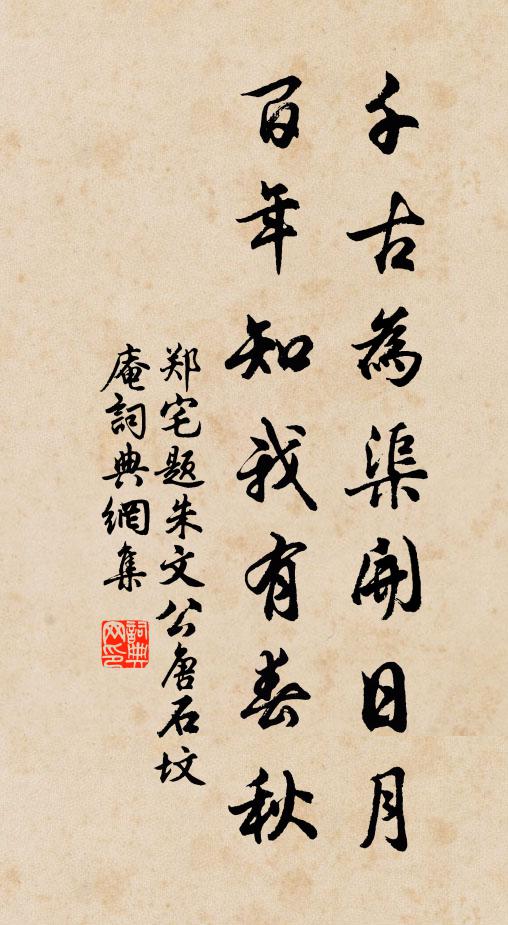 千古為渠開日月
百年知我有春秋
郑宅题朱文公唐石坟
庵詞典網集
詞典网印